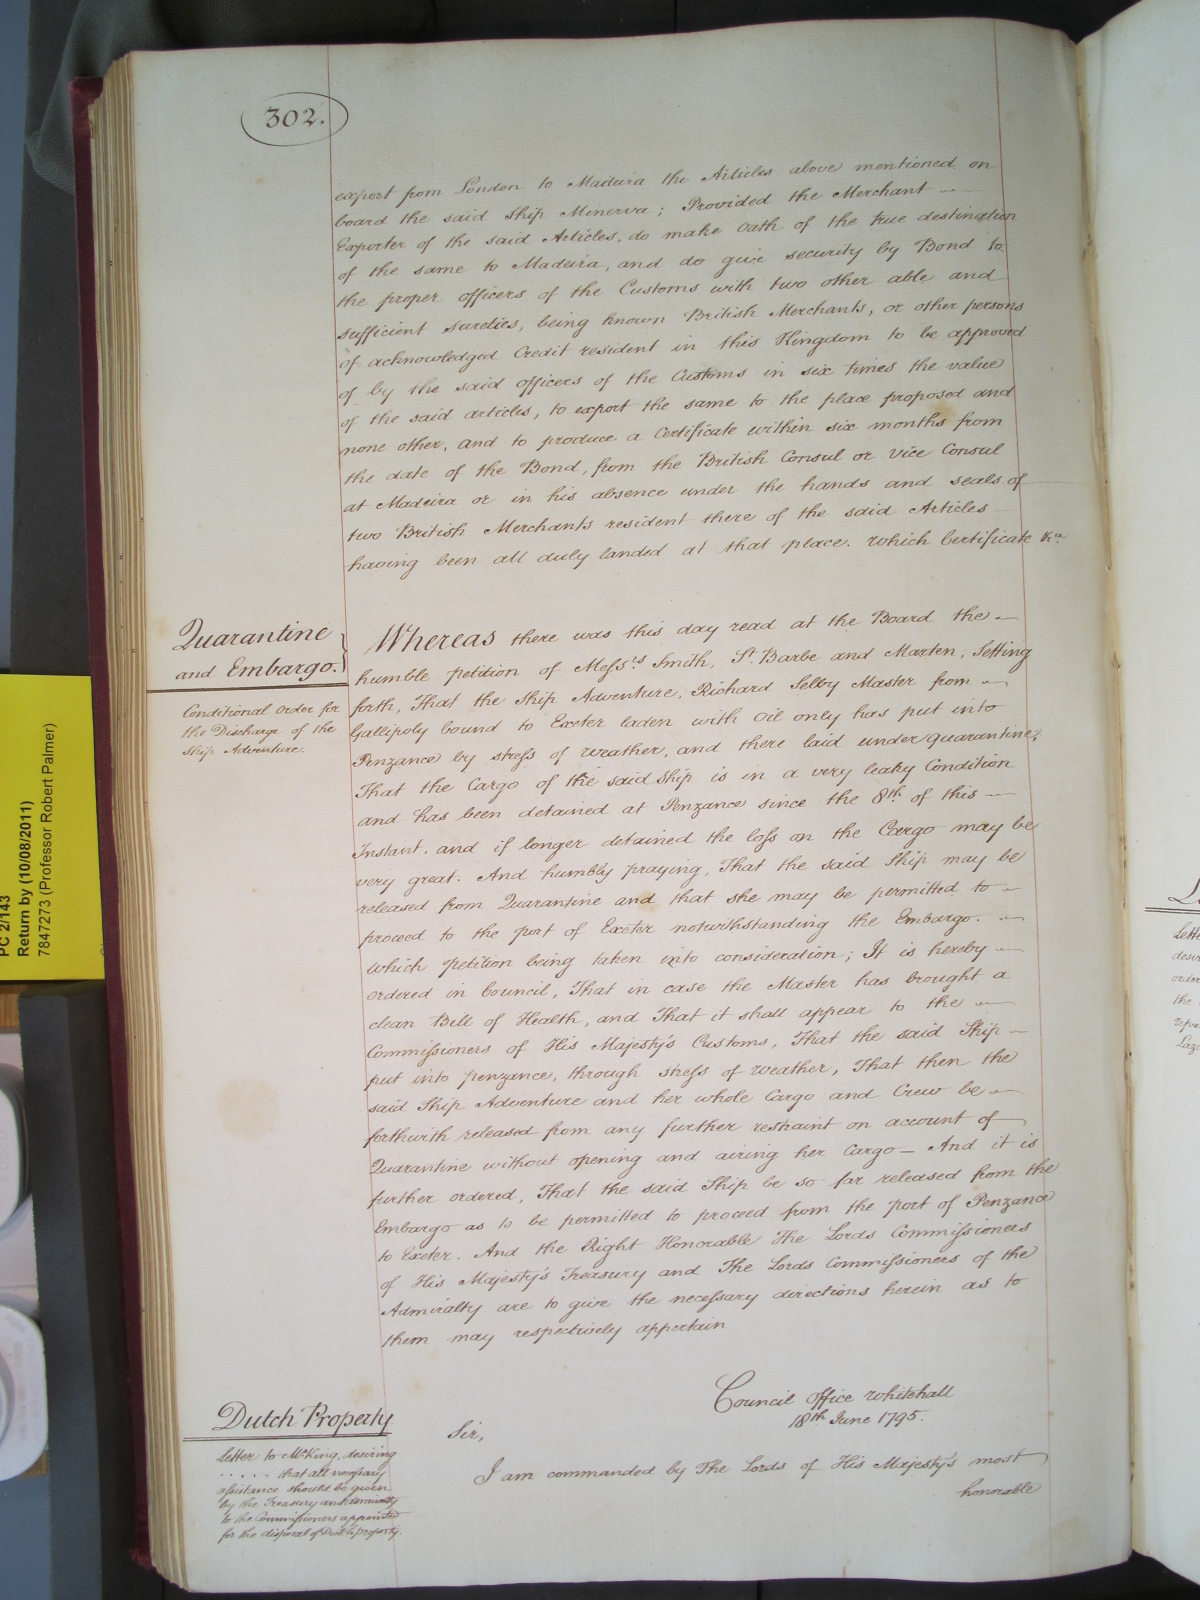 302.
export from London to Madeira the Articles above mentioned on
board the said Ship Minerva; Provided the Merchant
Exporter of the said Articles, do make Oath of the true destination
of the same to Madeira, and do give security by Bond to
the proper officers of the Customs with two other able and
sufficient sureties, being known British Merchants, or other persons
of acknowledged Credit resident in this Kingdom to be approved
of by the said officers of the Customs in six times the value
of the said articles, to export the same to the place proposed and
none other, and to produce a Certificate within six months from
the date of the Bond, from the British Consul or Vice Consul
at Madeira or in his absence under the hands and seals of
two British Merchants resident there of the said Articles
having been all duly landed at that place. Which Certificate &ca
Quarantine
and Embargo.
Conditional Order for
the Discharge of the
Ship Adventure.
Whereas there was this day read at the Board the
humble petition of Messrs Smith, St. Barbe and Marten, Setting
forth, That the Ship Adventure, Richard Selby Master from
Gallipoly bound to Exeter laden with Oil only has put into
Penzance by stress of weather, and there laid under quarantine;
That the Cargo of the said ship is in a very leaky Condition
and has been detained at Penzance since the 8th of this
Instant, and if longer detained the loss on the Cargo may be
very great. And humbly praying, That the said Ship may be
released from Quarantine and that she may be permitted to
proceed to the port of Exeter notwithstanding the Embargo.
Which petition being taken into consideration; It is hereby
ordered in Council, That in case the Master has brought a
clean Bill of Health, and That it shall appear to the
Commissioners of His Majesty's Customs, That the said Ship
put into penzance, through stress of weather, That then the
said Ship Adventure and her whole Cargo and Crew be
forthwith released from any further restraint on account of
Quarantine without opening and airing her Cargo — And it is
further ordered, That the said Ship be so far released from the
Embargo as to be permitted to proceed from the port of Penzance
to Exeter. And the Right Honorable The Lords Commissioners
of His Majesty's Treasury and The Lords Commissioners of the
Admiralty are to give the necessary directions herein as to
them may respectively appertain
Council Office Whitehall
18th June 1795.
Dutch Property
Letter to Mr King, desiring
. . . . . that all necessary
assistance should be given
by the Treasury and Admiralty
to the Commissioners appointed
for the disposal of Dutch property.
Sir,
I am commanded by The Lords of His Majesty's most
honorable
PC 2/143
Return by (10/08/2011)
7847273 (Professor Robert Palmer)